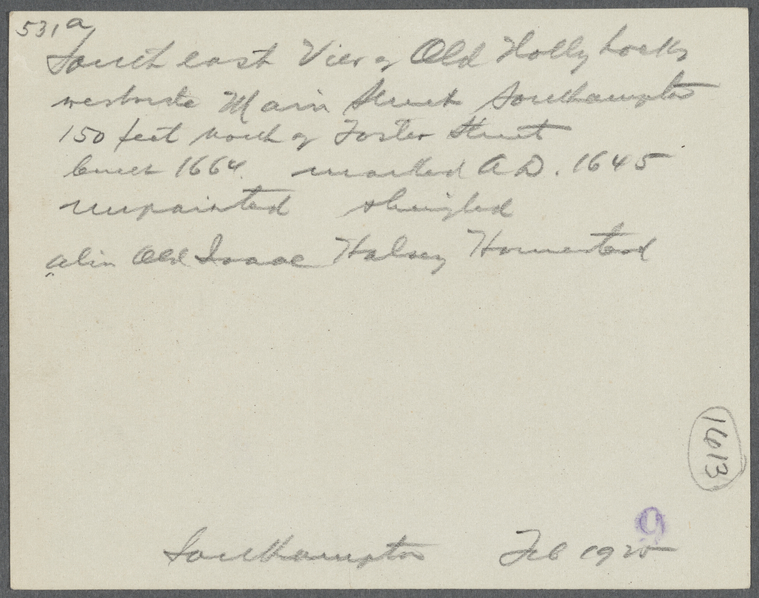 531a
South east View of Old Hollyhocks
westside Main Street Southampton
150 feet north of Foster Street
built 1664. marked A.D. 1645
unpainted shingled
alis Old Isaac Halsey Homestead
1613
9
Southampton Feb 1925